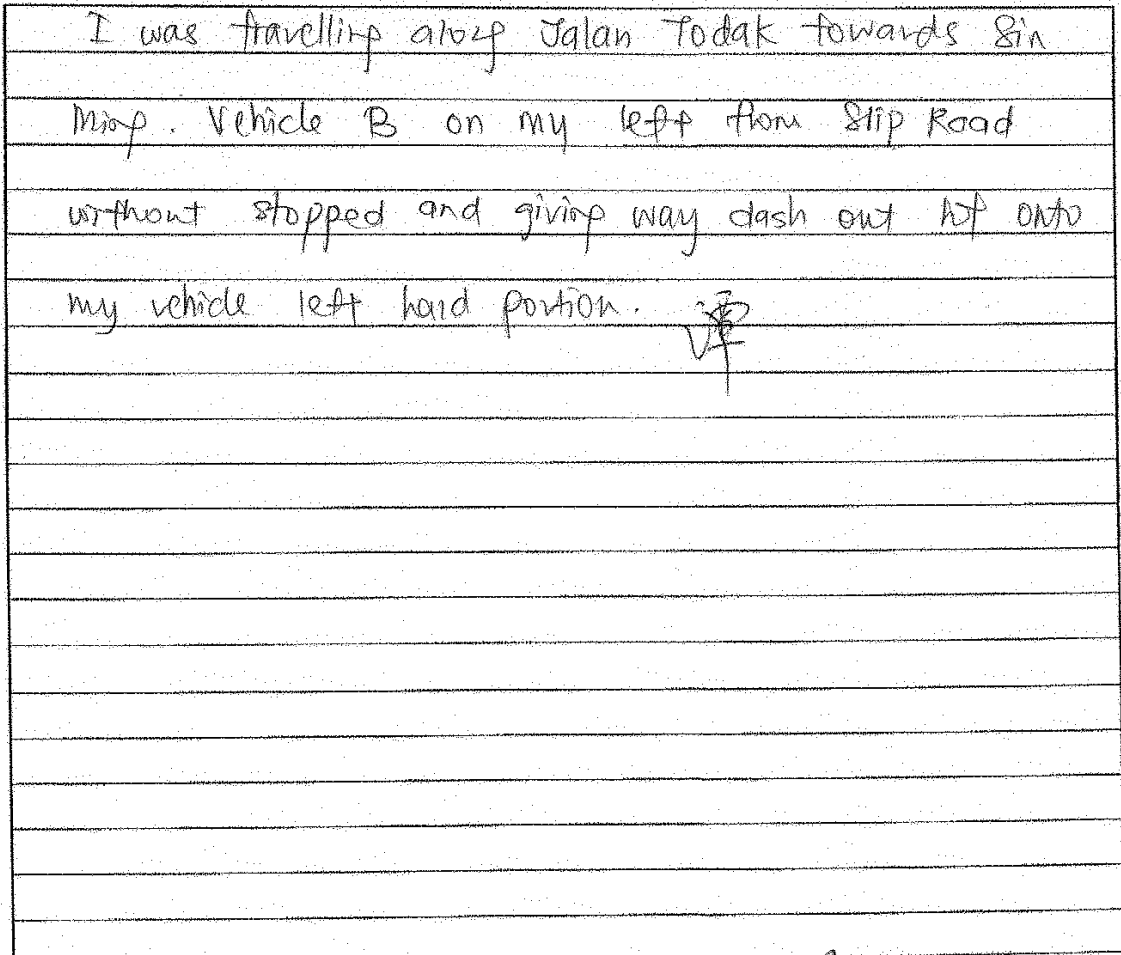 I was travelling along Jalan Todak towards Sin
Ming. Vehicle B on my left from Slip Road
without stopped and giving way dash out hit onto
my vehicle left hand portion. 谭